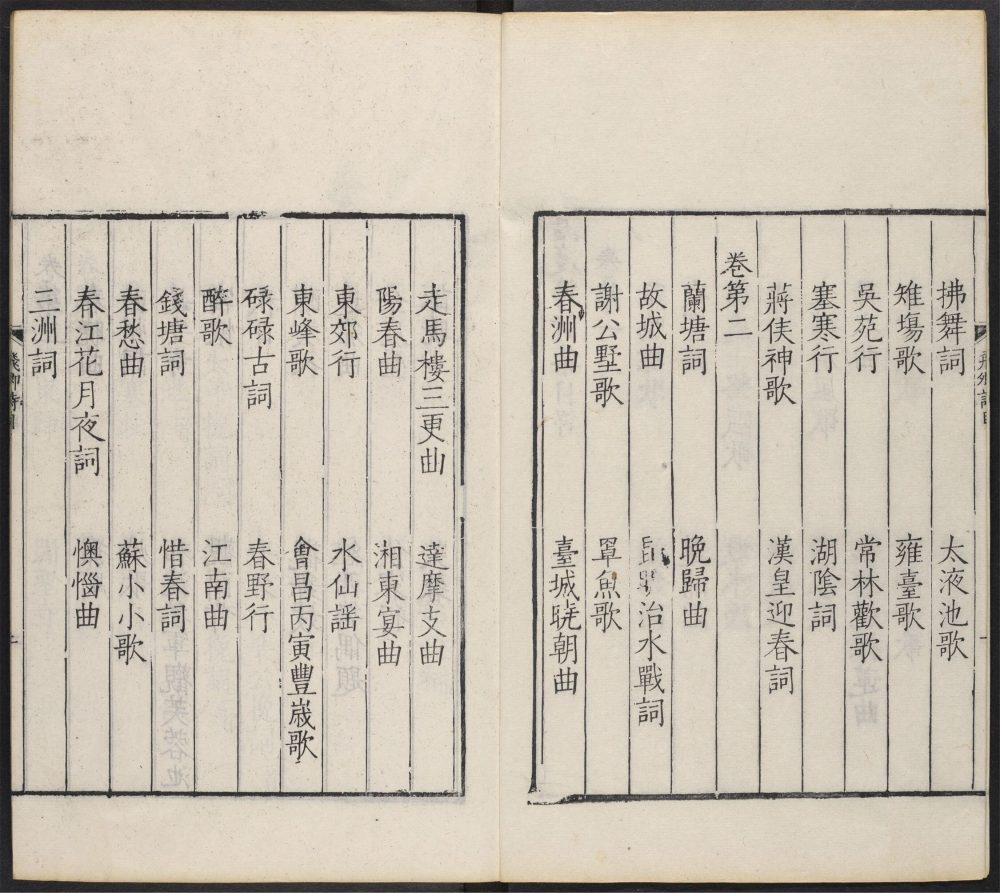 拂舞詞 太液池歌
雉塲歌 雍臺歌
吳苑行 常林歡歌
塞寒行 湖陰詞
蔣侯神歌 漢皇迎春詞
卷第二
蘭塘詞 晚歸曲
故城曲 治水戰詞
謝公墅歌 罩魚歌
春洲曲 臺城曉朝曲
走馬樓三更曲 達摩支曲
陽春曲 湘東宴曲
東郊行 水仙謠
東峰歌 會昌丙寅豐歲歌
碌碌古詞 春野行
醉歌 江南曲
錢塘詞 惜春詞
春愁曲 蘇小小歌
春江花月夜詞 懊惱曲
三洲詞